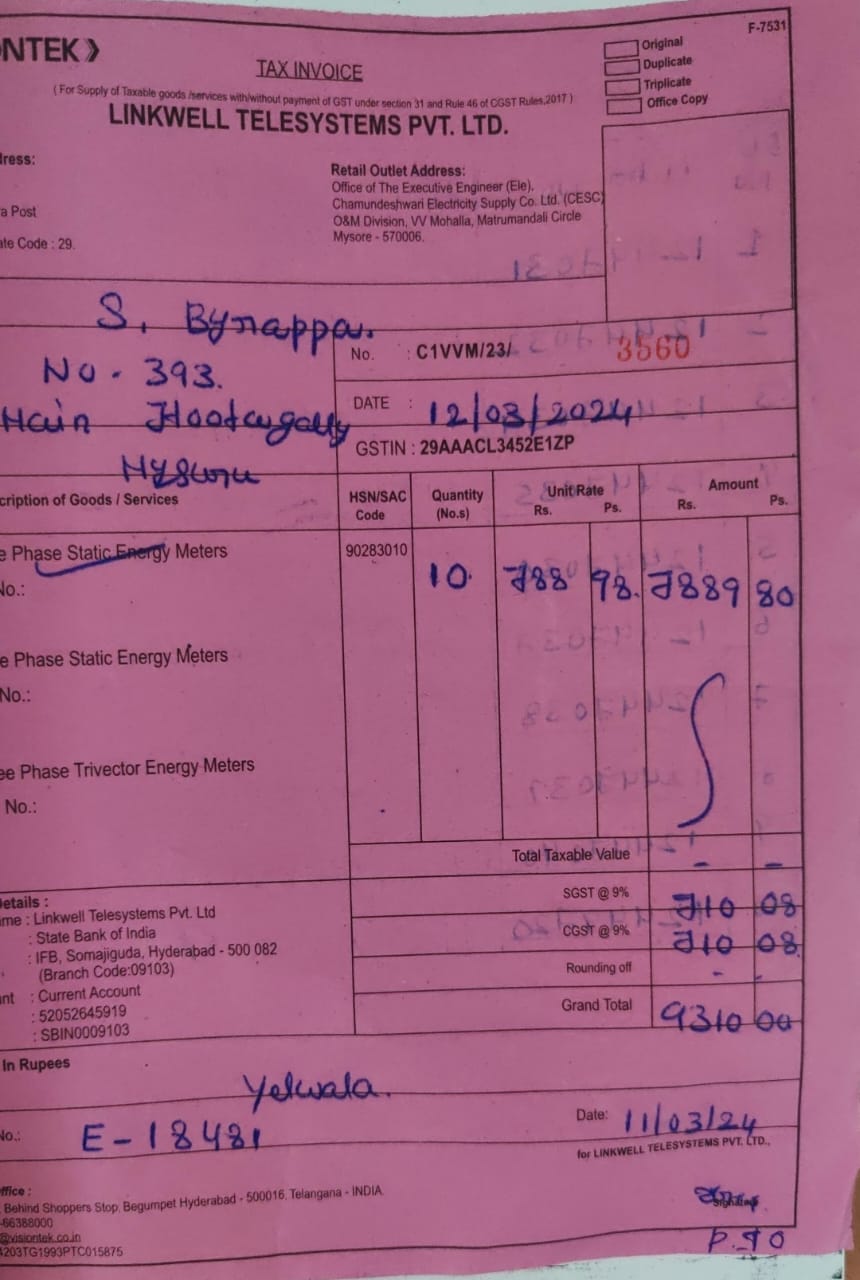 F-7531
NTEK
TAX INVOICE
Original
Duplicate
Triplicate
Office Copy
( For Supply of Taxable goods /services with/without payment of GST under section 31 and Rule 46 of CGST Rules,2017 )
LINKWELL TELESYSTEMS PVT. LTD.
dress:
a Post
ate Code : 29.
Retail Outlet Address:
Office of The Executive Engineer (Ele),
Chamundeshwari Electricity Supply Co. Ltd. (CESC)
O&M Division, VV Mohalla, Matrumandali Circle
Mysore - 570006.
S. Bynappa.
No. 393.
Main Hootagally
Mysuru
No. : C1VVM/23/ 3560
DATE : 12/03/2024
GSTIN : 29AAACL3452E1ZP
cription of Goods / Services HSN/SAC Code Quantity (No.s) Unit Rate Rs. Ps. Amount Rs. Ps.
e Phase Static Energy Meters 90283010 10. 788 98. 7889 80
No.:
e Phase Static Energy Meters
No.:
ee Phase Trivector Energy Meters
No.:
Total Taxable Value - -
SGST @ 9% 710 08
CGST @ 9% 710 08.
Rounding off - -
Grand Total 9310 00
etails :
me : Linkwell Telesystems Pvt. Ltd
: State Bank of India
: IFB, Somajiguda, Hyderabad - 500 082
(Branch Code:09103)
nt : Current Account
: 52052645919
: SBIN0009103
In Rupees
Yelwala.
No.: E-18481
Date: 11/03/24
for LINKWELL TELESYSTEMS PVT. LTD.,
ffice :
Behind Shoppers Stop, Begumpet Hyderabad - 500016, Telangana - INDIA.
-66388000
@visiontek.co.in
4203TG1993PTC015875
P.TO